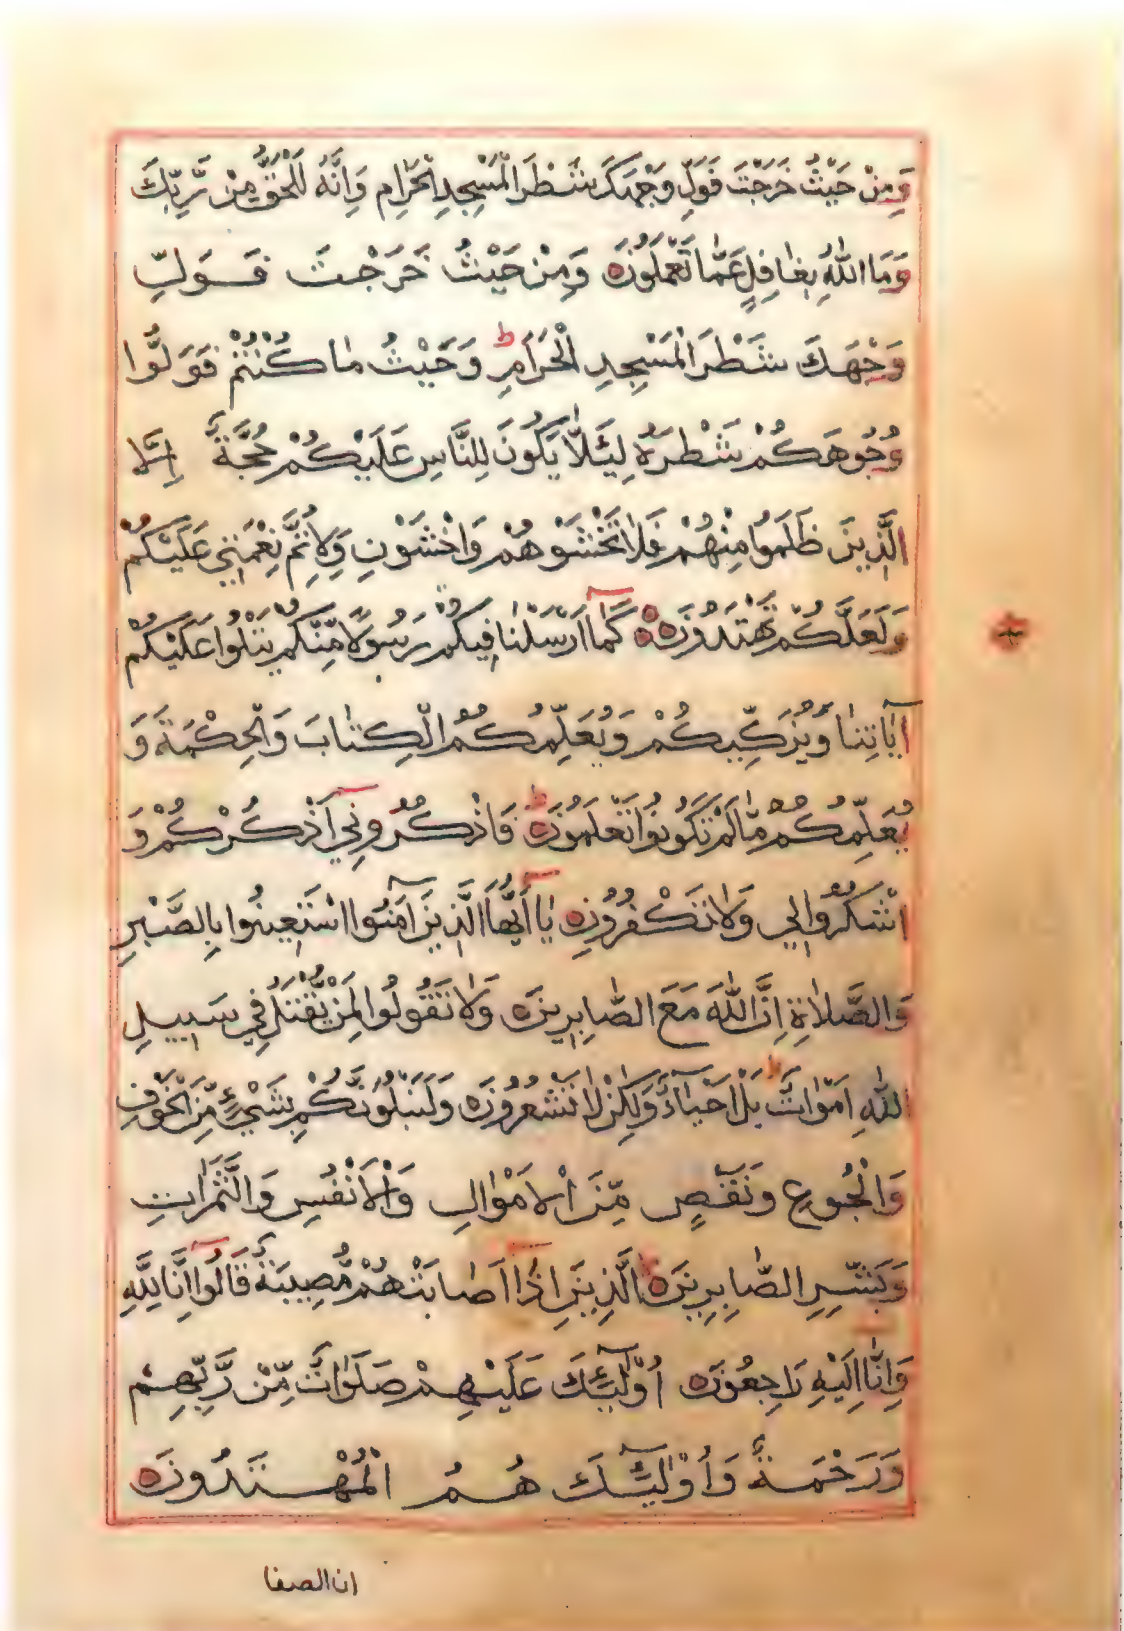 وَمِنْ حَيْثُ خَرَجْتَ فَوَلِّ وَجْهَكَ شَطْرَ الْمَسْجِدِ الْحَرَامِ وَاِنَّهُ لَلْحَقُّ مِنْ رَّبِّكَ
وَمَا اللّٰهُ بِغَافِلٍ عَمَّا تَعْمَلُونَ ه وَمِنْ حَيْثُ خَرَجْتَ فَوَلِّ
وَجْهَكَ شَطْرَ الْمَسْجِدِ الْحَرَامِ ط وَحَيْثُ مٰا كُنْتُمْ فَوَلُّوا
وُجُوهَكُمْ شَطْرَهُ لِئَلَّا يَكُونَ لِلنَّاسِ عَلَيْكُمْ حُجَّةٌ اِلَّا
الَّذِينَ ظَلَمُوا مِنْهُمْ فَلٰا تَخْشَوْهُمْ وَاخْشَوْنِ وَلِاُتِمَّ نِعْمَتِي عَلَيْكُمْ
وَلَعَلَّكُمْ تَهْتَدُونَ ه كَمَآ اَرْسَلْنٰا فِيكُمْ رَسُولًا مِّنْكُمْ يَتْلُوا عَلَيْكُمْ
اٰيٰاتِنٰا وَيُزَكِّيكُمْ وَيُعَلِّمُكُمُ الْكِتٰابَ وَالْحِكْمَةَ وَ
يُعَلِّمُكُمْ مّٰا لَمْ تَكُونُوا تَعْلَمُونَ ه ط فَاذْكُرُونِيٓ اَذْكُرْكُمْ وَ
اشْكُرُوا لِي وَلٰا تَكْفُرُونِ ه يٰآ اَيُّهَا الَّذِينَ آمَنُوا اسْتَعِينُوا بِالصَّبْرِ
وَالصَّلاٰةِ اِنَّ اللّٰهَ مَعَ الصّٰابِرِينَ ه وَلٰا تَقُولُوا لِمَنْ يُّقْتَلُ فِي سَبِيلِ
اللّٰهِ اَمْوٰاتٌ ط بَلْ اَحْيٰآءٌ وَلٰكِنْ لٰا تَشْعُرُونَ ه وَلَنَبْلُوَنَّكُمْ بِشَيْءٍ مِّنَ الْخَوْفِ
وَالْجُوعِ وَنَقْصٍ مِّنَ الْاَمْوٰالِ وَالْاَنْفُسِ وَالثَّمَرٰاتِ
وَبَشِّرِ الصّٰابِرِينَ ه الَّذِينَ اِذٰآ اَصٰابَتْهُمْ مُّصِيبَةٌ قَالُوٓا اِنَّا لِلّٰهِ
وَاِنّٰا اِلَيْهِ رَاجِعُونَ ه اُوْلٰٓئِكَ عَلَيْهِمْ صَلَوٰاتٌ مِّنْ رَّبِّهِمْ
وَرَحْمَةٌ وَاُوْلٰٓئِكَ هُمُ الْمُهْتَدُونَ ه
ان الصفا